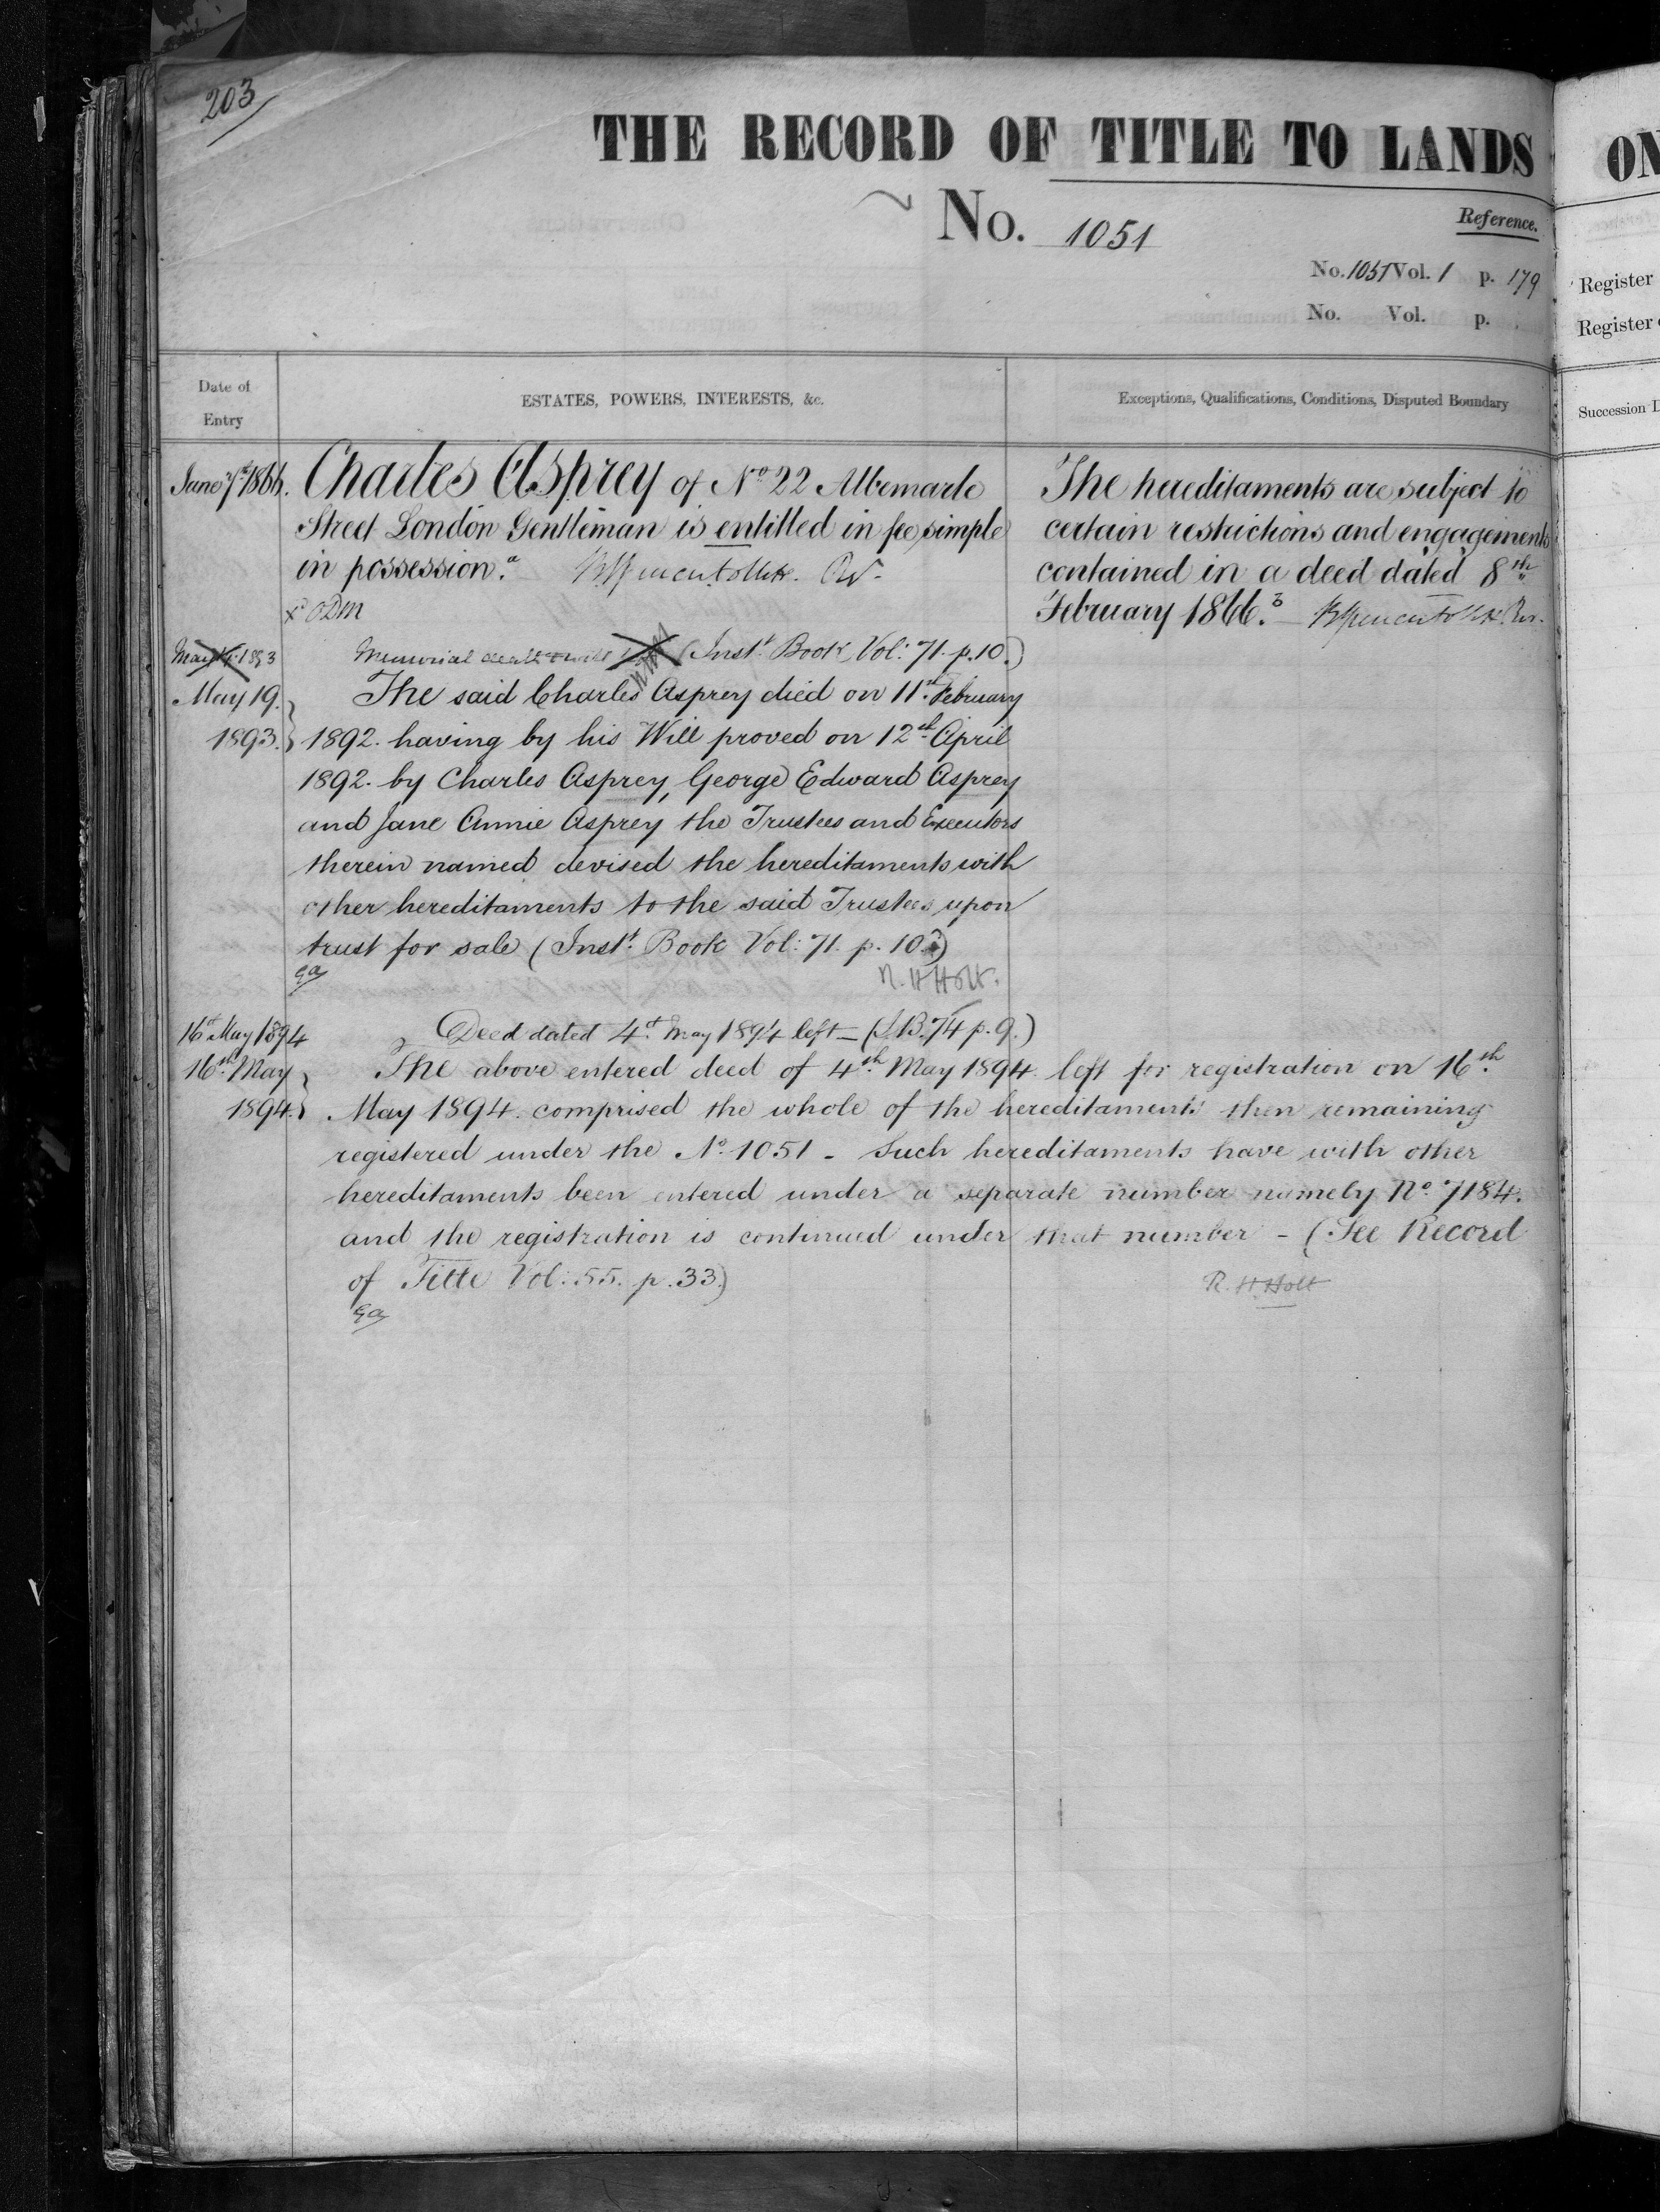 203
THE RECORD OF TITLE TO LANDS
No. 1051
Reference.
No. 1051 Vol. 1 p. 179
No. Vol. p.
Date of Entry
ESTATES, POWERS, INTERESTS, &c.
Exceptions, Qualifications, Conditions, Disputed Boundary
June 7th 1866.
Charles Asprey of No 22 Albemarle
Street London Gentleman is entitled in fee simple
in possession.
x ODM
The hereditaments are subject to
certain restrictions and engagements
contained in a deed dated 8th
February 1866.
May 1893
Memorial death & will (Inst. Book, Vol: 71. p. 10.)
May 19. 1893.
The said Charles Asprey died on 11th February
1892. having by his Will proved on 12th April
1892. by Charles Asprey, George Edward Asprey
and Jane Annie Asprey the Trustees and Executors
therein named devised the hereditaments with
other hereditaments to the said Trustees upon
trust for sale (Inst. Book Vol: 71. p. 10.)
R. H Holt.
16th May 1894
Deed dated 4th May 1894 left – (I.B. 74 p. 9.)
16th May 1894.
The above entered deed of 4th May 1894 left for registration on 16th
May 1894. comprised the whole of the hereditaments then remaining
registered under the No 1051 - Such hereditaments have with other
hereditaments been entered under a separate number namely No 7184.
and the registration is continued under that number - (See Record
of Title Vol: 55. p. 33.)
R. H Holt
ON
Register
Register
Succession D